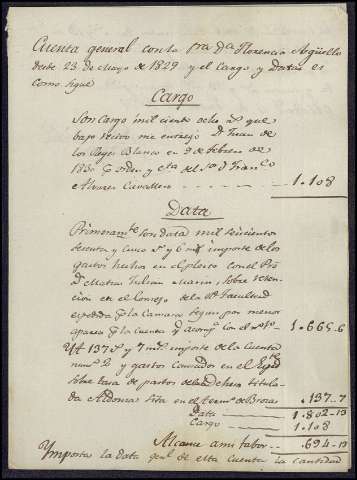 Cuenta general con la Sra Da Florencia Argüello
desde 23 de Mayo de 1829 y el Cargo y Datas es
como sigue
Cargo
Son cargo mil ciento ocho rs que
bajo recivo me entregó Dn Juan de
los Reyes Blanco en 9 de febrero de
1830 por orden y cta del Sor Dn Franco
Alvarez Cavallero 1.108
Data
Primeramte son data mil seiscientos
sesenta y cinco rs y 6 ms importe de los
gastos hechos en el pleito con el Pro
Dn Matias Julian Marin, sobre reten-
cion en el Consejo de la Rl facultad
expedida por la Camara segun por menor
aparece por la Cuenta que acompa con el no 1o 1.665-6
Yt 137 rs y 7 ms importe de la Cuenta
numo 2 y gastos causados en el
sobre tasa de pastos de la Dehesa titula-
da Aldonza sita en el termo de Brozas 137-7
Data 1.802-13
Cargo 1.108
Alcance a mi fabor 694-13
Ymporta la data genl de esta Cuenta la cantidad